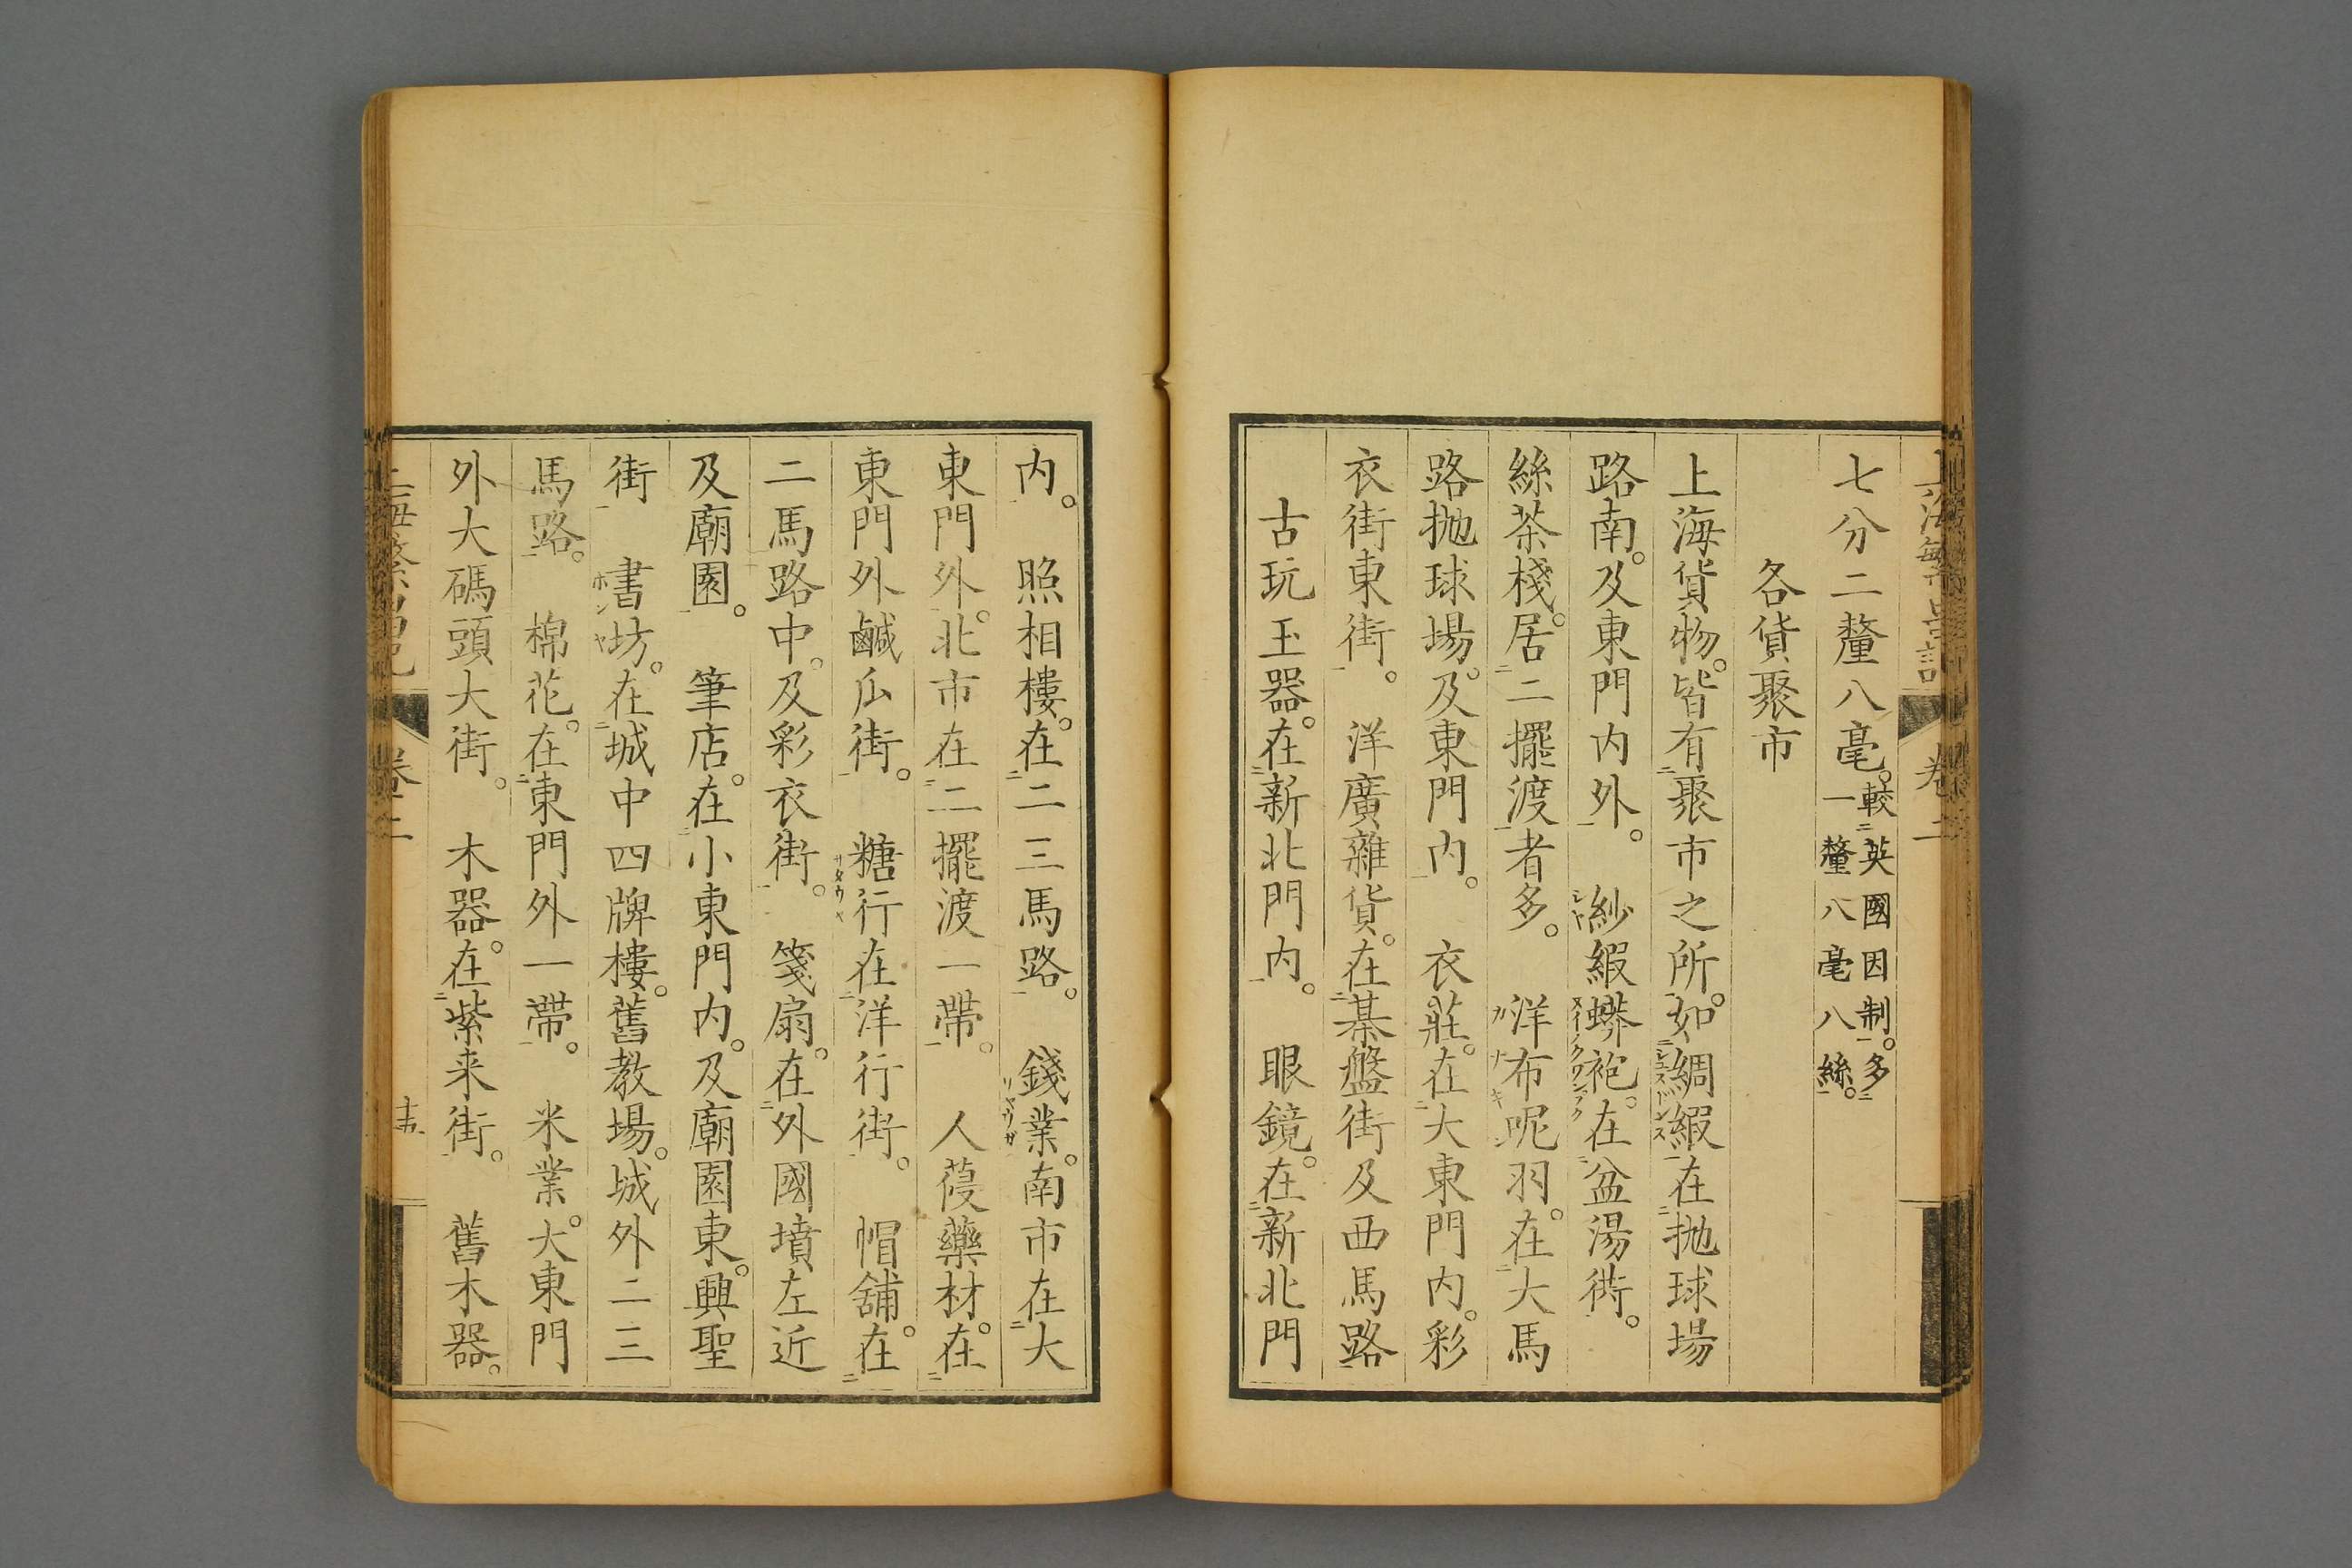 七分二釐八毫。較英國因制。多
一釐八毫八絲。
各貨聚市
上海貨物。皆有聚市之所。如綢緞在抛球場
路南。及東門內外。 紗緞蟒袍。在盆湯衖。
絲茶棧。居二擺渡者多。 洋布呢羽。在大馬
路抛球場。及東門內。 衣莊。在大東門內。彩
衣街東街。 洋廣雜貨。在棊盤街及西馬路
古玩玉器。在新北門內。 眼鏡。在新北門
內。 照相樓。在二三馬路。 錢業。南市在大
東門外。北市在二擺渡一帶。 人葠藥材。在
東門外鹹瓜街。 糖行在洋行街。 帽舖。在
二馬路中。及彩衣街。 箋扇。在外國墳左近
及廟園。 筆店。在小東門內。及廟園東。興聖
街 書坊。在城中四牌樓。舊教場。城外二三
馬路。 棉花。在東門外一帶。 米業。大東門
外大碼頭大街。 木器。在紫来街。 舊木器。
卷二
十五